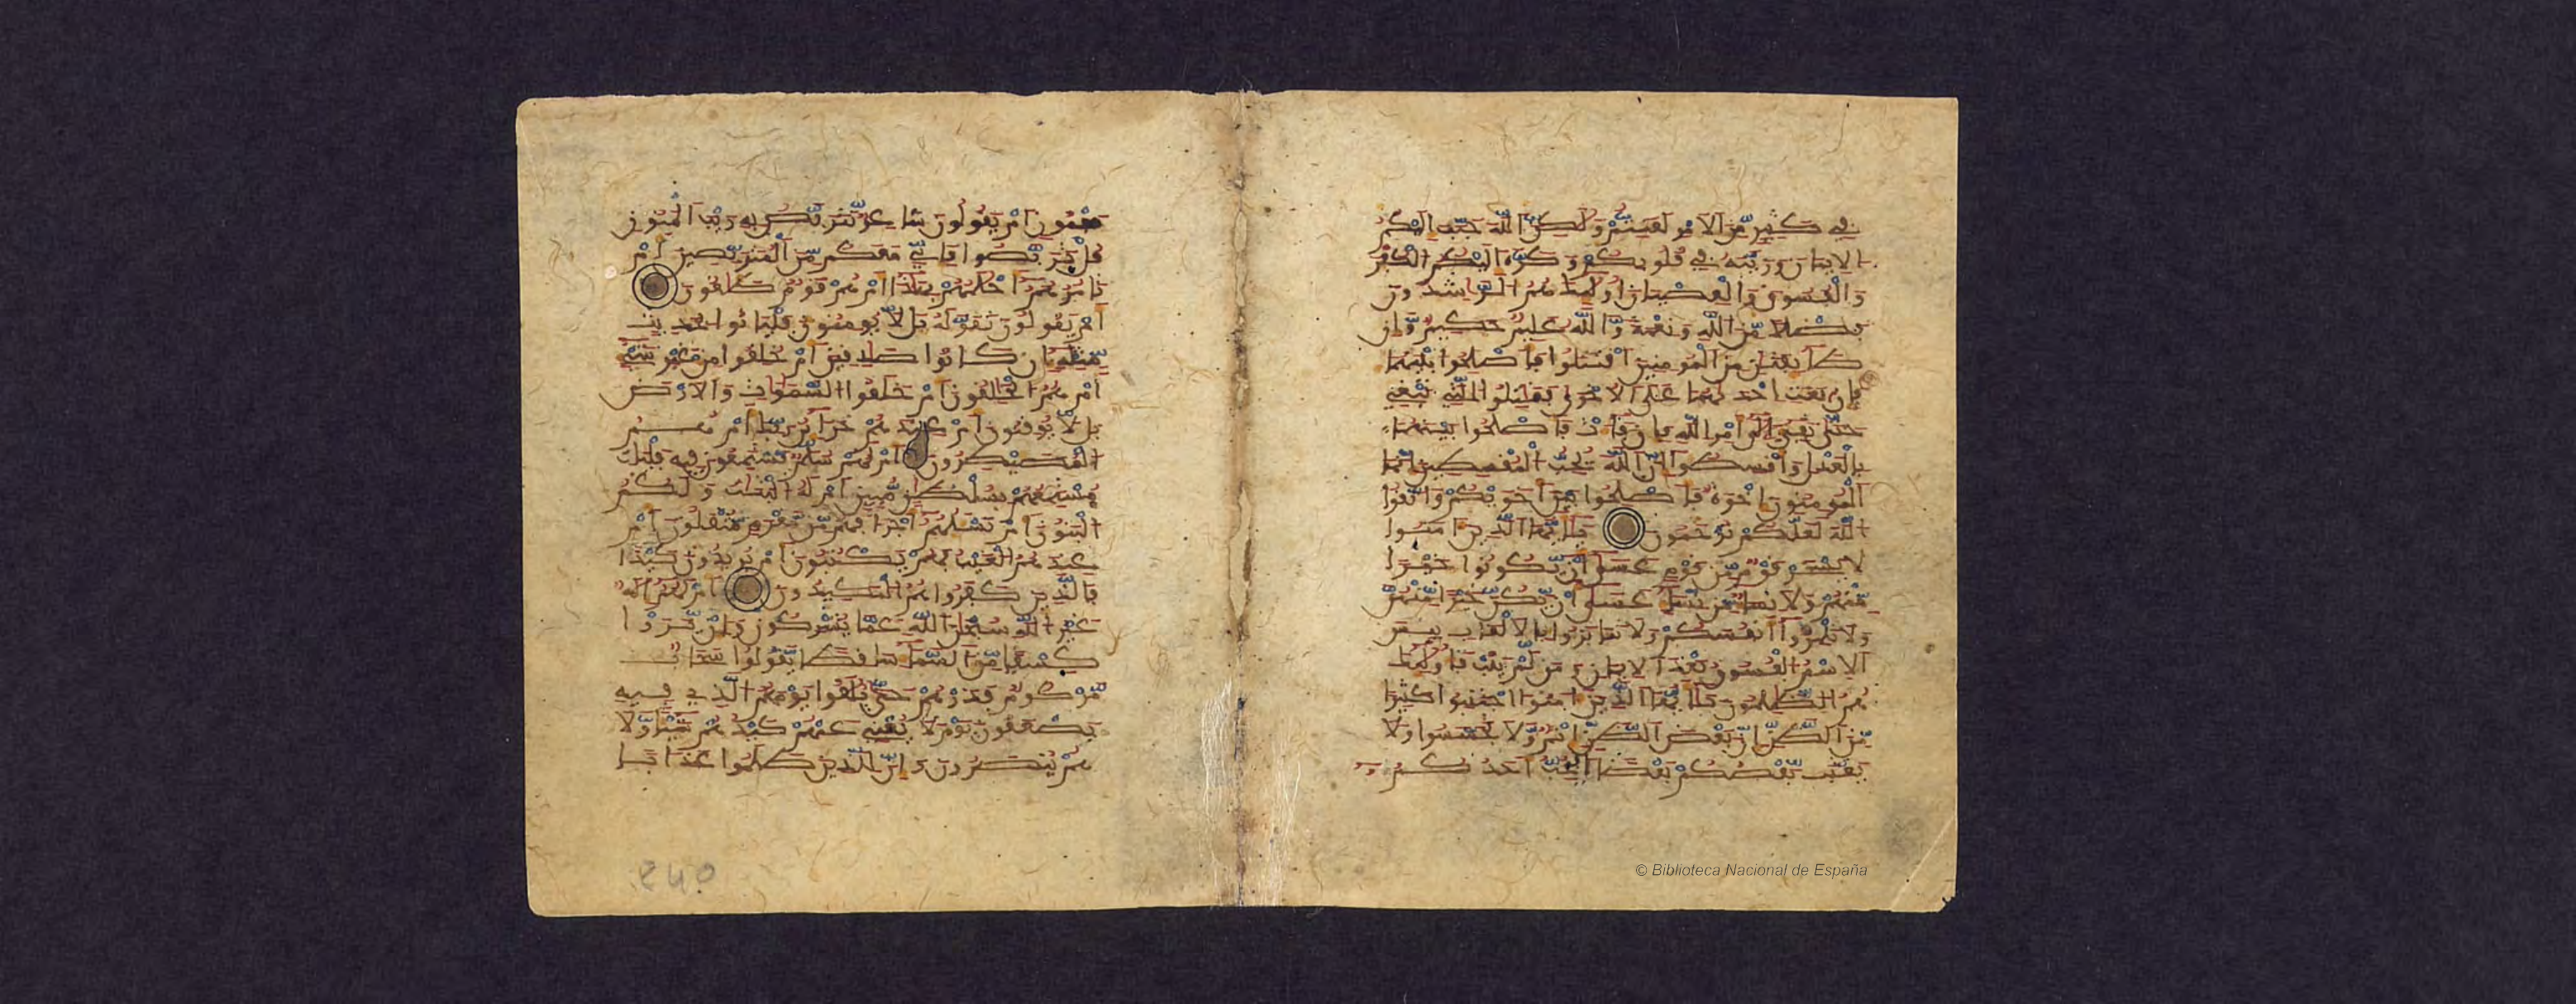 في كثير من الامر لعنتم ولكن الله حبب اليكم
الايمان وزينه في قلوبكم وكره اليكم الكفر
والفسوق والعصيان اولئك هم الرشدون
فضلا من الله ونعمة والله عليم حكيم وان
طائفتن من المومنين اقتتلوا فاصلحوا بينهما
فان بغت احديهما على الاخرى فقتلوا التي تبغي
حتى تفيء الى امر الله فان فاءت فاصلحوا بينهما
بالعدل واقسطوا ان الله يحب المقسطين انما
المومنون اخوة فاصلحوا بين اخويكم واتقوا
الله لعلكم ترحمون يايها الذين امنوا
لا يسخر قوم من قوم عسى ان يكونوا خيرا
منهم ولا نساء من نساء عسى ان يكن خيرا منهن
ولا تلمزوا انفسكم ولا تنابزوا بالالقاب بيس
الاسم الفسوق بعد الايمان ومن لم يتب فاولئك
هم الظلمون يايها الذين امنوا اجتنبوا كثيرا
من الظن ان بعض الظن اثم ولا تجسسوا ولا
يغتب بعضكم بعضا ايحب احدكم
مجنون ام يقولون شاعر نتربص به ريب المنون
قل تربصوا فاني معكم من المتربصين ام
تامرهم احلمهم بهذا ام هم قوم طاغون
ام يقولون تقوله بل لا يومنون فلياتوا بحديث
مثله ان كانوا صدقين ام خلقوا من غير شيء
ام هم الخلقون ام خلقوا السموات والارض
بل لا يوقنون ام عندهم خزائن ربك ام هم
المصيطرون ام لهم سلم يستمعون فيه فليات
مستمعهم بسلطن مبين ام له البنت ولكم
البنون ام تسلهم اجرا فهم من مغرم مثقلون ام
عندهم الغيب فهم يكتبون ام يريدون كيدا
فالذين كفروا هم المكيدون ام لهم اله
غير الله سبحن الله عما يشركون وان يروا
كسفا من السماء ساقطا يقولوا سحاب
مركوم فذرهم حتى يلقوا يومهم الذي فيه
يصعقون يوم لا يغني عنهم كيدهم شيئا ولا
هم ينصرون وان للذين ظلموا عذابا
© Biblioteca Nacional de España